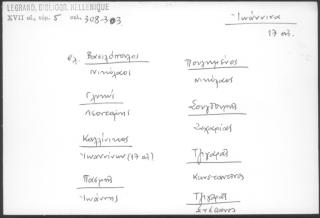 LEGRAND, BIBLIOGR. HELLENIQUE
XVII αἰ, τόμ. 5 σελ. 308-313
Ἰωάννινα
17 αἰ.
βλ. Βασιλόπουλος
Νικόλαος
Γλυκύς
Λεοντάρης
Καλλίνικος
Ἰωαννίνων (17 αἰ)
Πασχάλης
Ἰωάννης
Πολυμένος
Νικόλαος
Σουγδουρῆς
Ζαχαρίας
Τζιγαρᾶς
Κωνσταντῖνος
Τζιγαρᾶς
Στέφανος